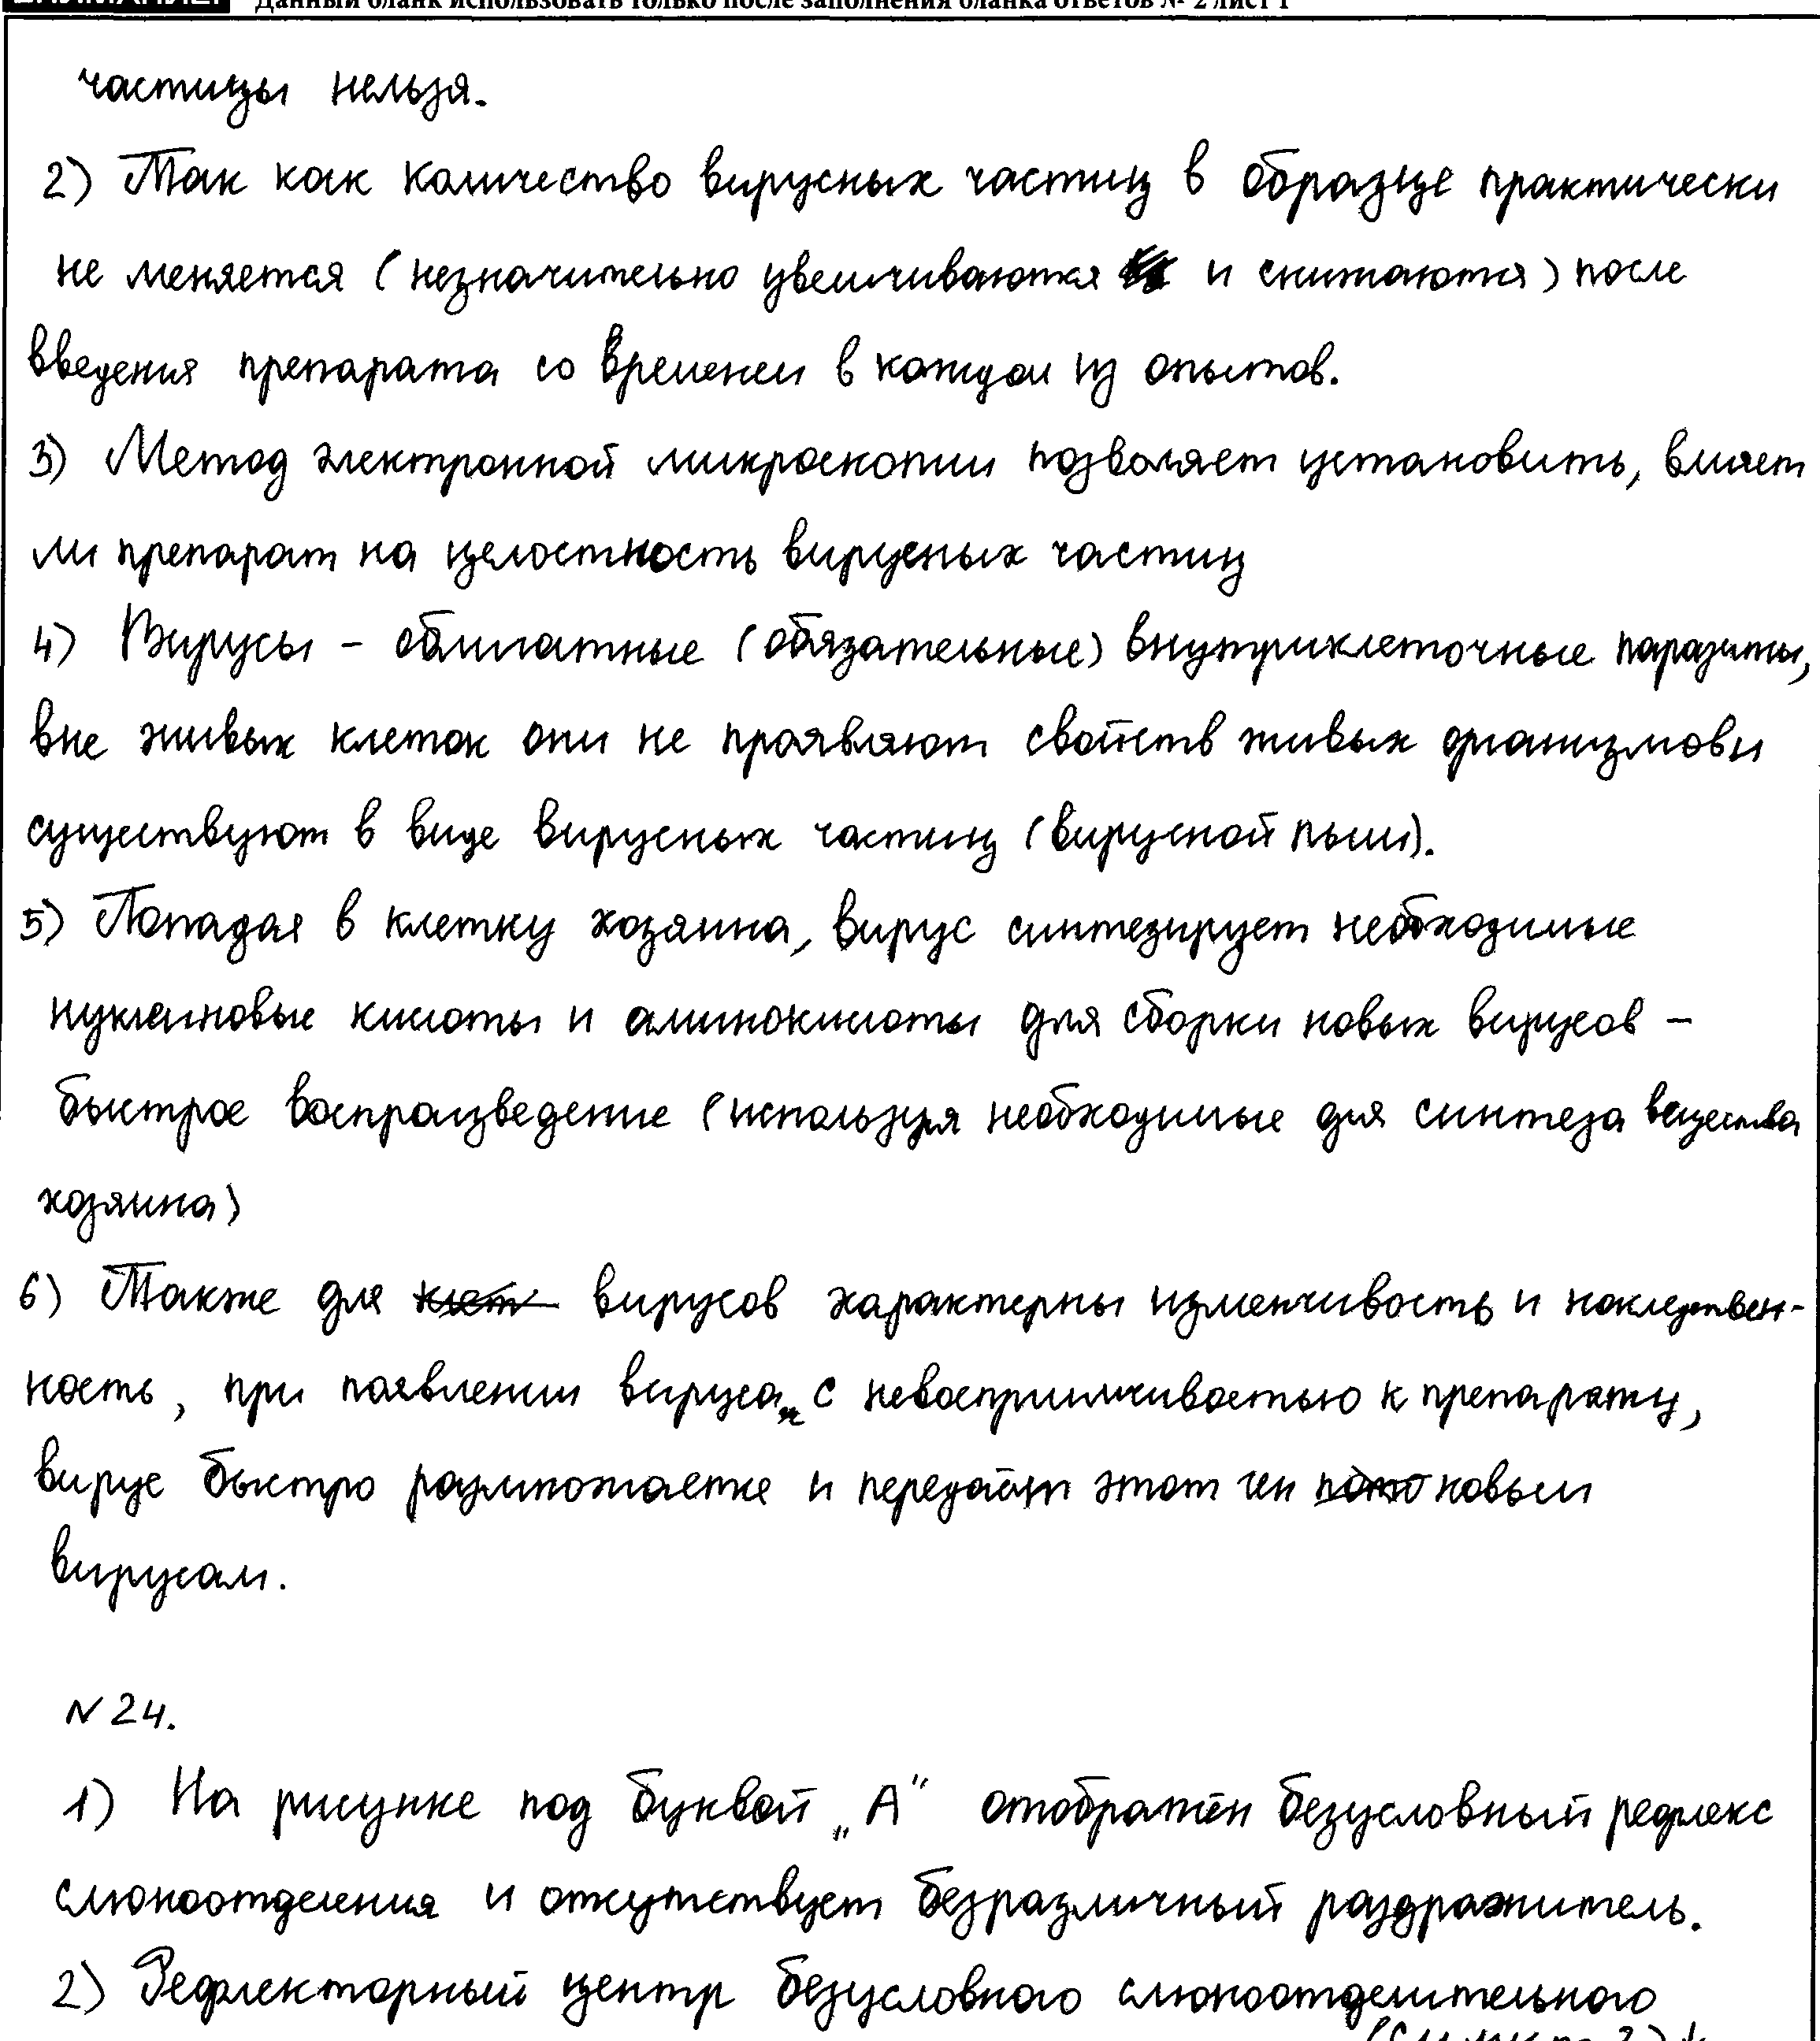 Данный бланк использовать только после заполнения бланка ответов № 2 лист 1
частицы нельзя.
2) Так как количество вирусных частиц в образце практически
не меняется (незначительно увеличиваются и снижаются) после
введения препарата со временем в каждом из опытов.
3) Метод электронной микроскопии позволяет установить, влияет
ли препарат на целостность вирусных частиц
4) Вирусы – облигатные (обязательные) внутриклеточные паразиты,
вне живых клеток они не проявляют свойств живых организмов и
существуют в виде вирусных частиц (вирусной пыли).
5) Попадая в клетку хозяина, вирус синтезирует необходимые
нуклеиновые кислоты и аминокислоты для сборки новых вирусов –
быстрое воспроизведение (используя необходимые для синтеза вещества
хозяина)
6) Также для вирусов характерны изменчивость и наследствен-
ность, при появлении вируса с невосприимчивостью к препарату,
вирус быстро размножается и передаёт этот ген новым
вирусам.
№ 24.
1) На рисунке под буквой „А“ отображён безусловный рефлекс
слюноотделения и отсутствует безразличный раздражитель.
2) Рефлекторный центр безусловного слюноотделительного